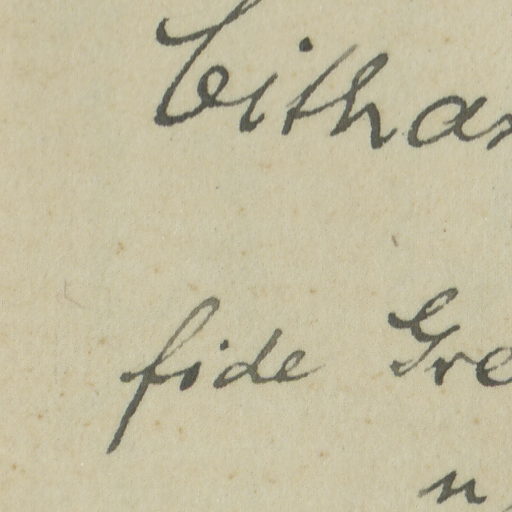 Cithar
fide Gre
n